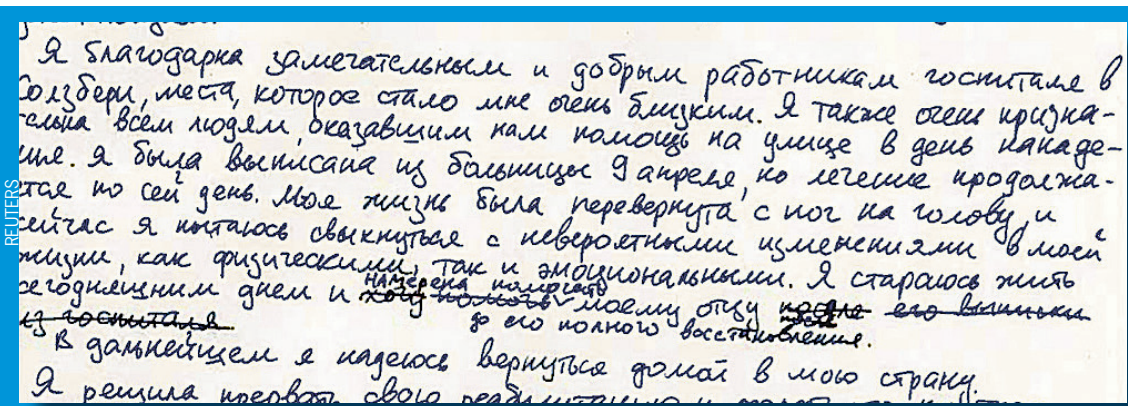 Я благодарна замечательным и добрым работникам госпиталя в
Солзбери, места, которое стало мне очень близким. Я также очень призна-
тельна всем людям, оказавшим нам помощь на улице в день нападе-
ния. Я была выписана из больницы 9 апреля, но лечение продолжа-
ется по сей день. Моя жизнь была перевернута с ног на голову, и
сейчас я пытаюсь свыкнуться с невероятными изменениями в моей
жизни, как физическими, так и эмоциональными. Я стараюсь жить
намерена помогать
сегодняшним днем и хочу помочь моему отцу после его выписки
из госпиталя до его полного восстановления.
В дальнейшем я надеюсь вернуться домой в мою страну.
Я решила прервать свою реабилитацию и
REUTERS